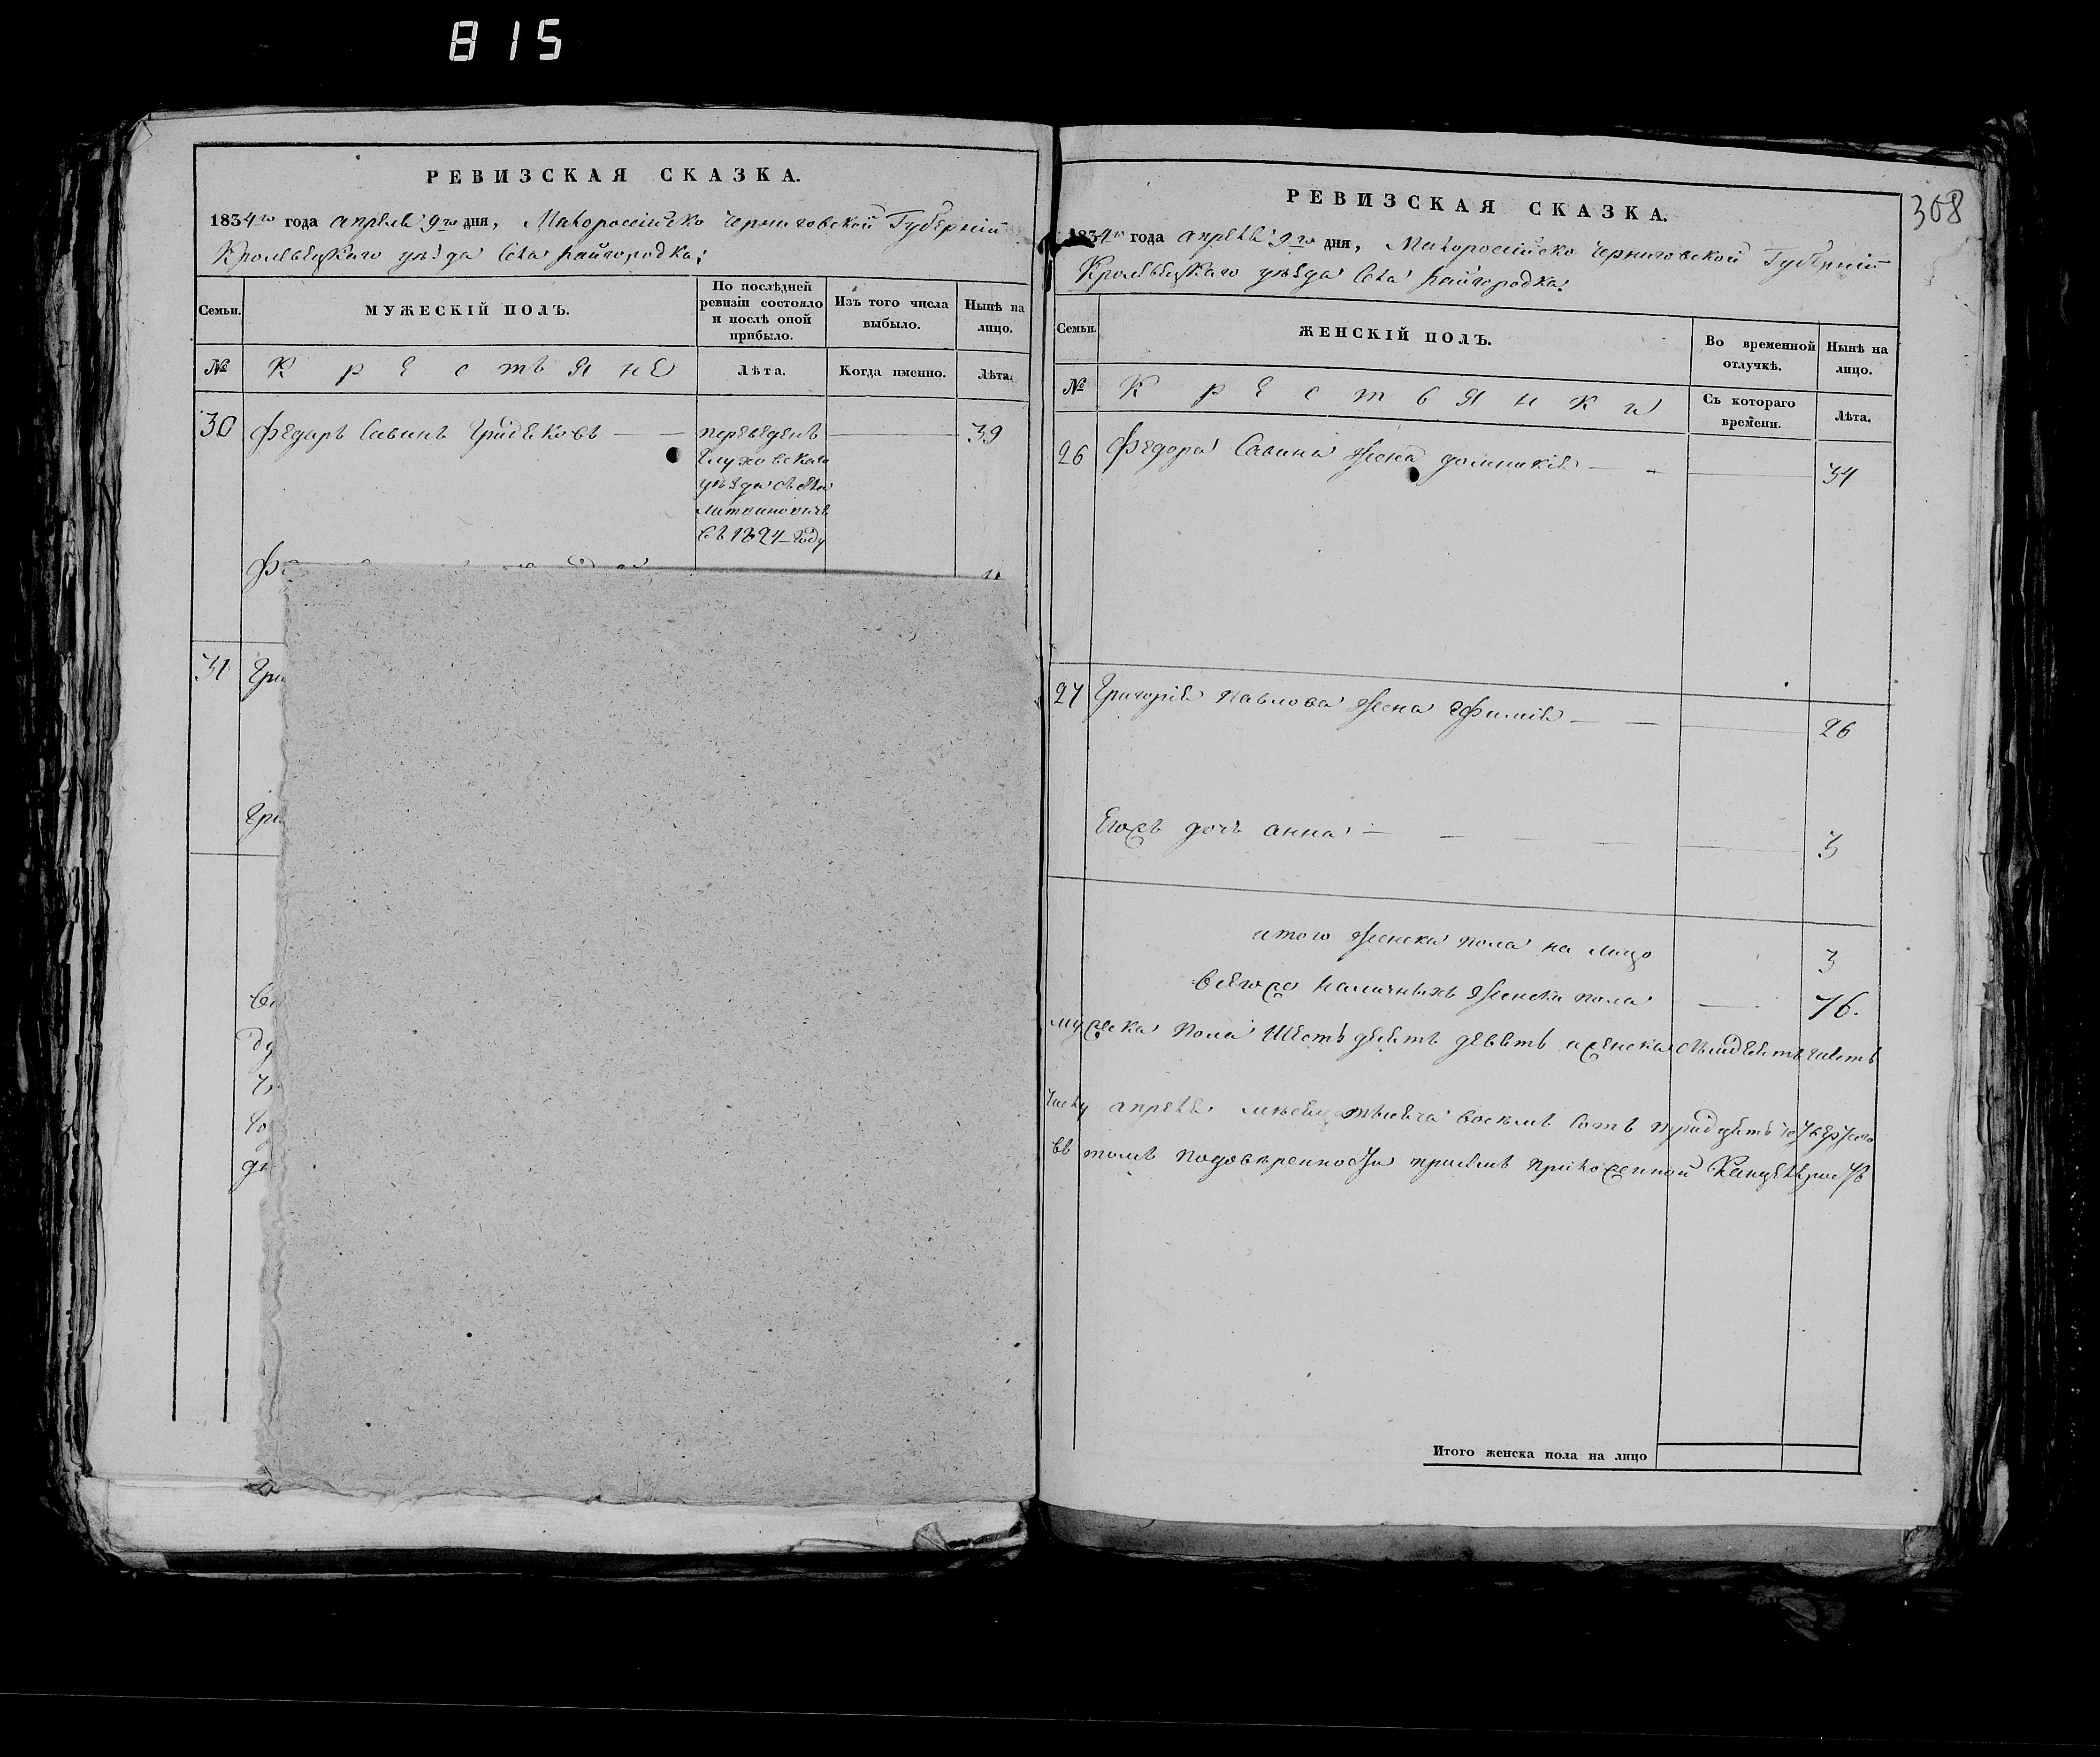 815
РЕВИЗСКАЯ СКАЗКА.
1834го года апреля 9го дня, Малороссійско Черниговской Губерніи
Кролевецкаго уѣзда Села Райгородка:
Семьи.
МУЖЕСКІЙ ПОЛЪ.
По послѣдней ревизіи состояло и послѣ оной прибыло.
Изъ того числа выбыло.
Нынѣ на лицо.
№
Крестьяне
Лѣта.
Когда именно.
Лѣта.
30 Федоръ Савинъ 39
переведенъ
Глуховскаго
уѣзда села
Литвиновичъ
въ 1824 году
31
РЕВИЗСКАЯ СКАЗКА.
308
1834го года апреля 9го дня, Малороссійско Черниговской Губерніи
Кролевецкаго уѣзда Села Райгородка:
Семьи.
ЖЕНСКІЙ ПОЛЪ.
Во временной отлучкѣ.
Нынѣ на лицо.
№
Крестьянки
Съ котораго времени.
Лѣта.
26 Федора Савина жена домникія 34
27 Григорія Павлова жена Ефимія 26
Егожъ дочь анна 3
итого женска пола на лицо 3
всего наличныхъ женска пола 76.
мужеска пола шестьдесятъ девять женска семьдесятъ шесть
апреля тысяча восемь сотъ тридцать четвертого
въ томъ
Итого женска пола на лицо